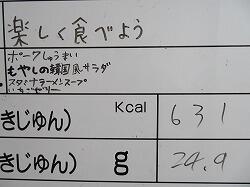 楽しく食べよう
ポークしゅうまい
もやしの韓国風サラダ
スタミナラーメンスープ
いちごゼリー
きじゅん) Kcal 631
きじゅん) g 24.9